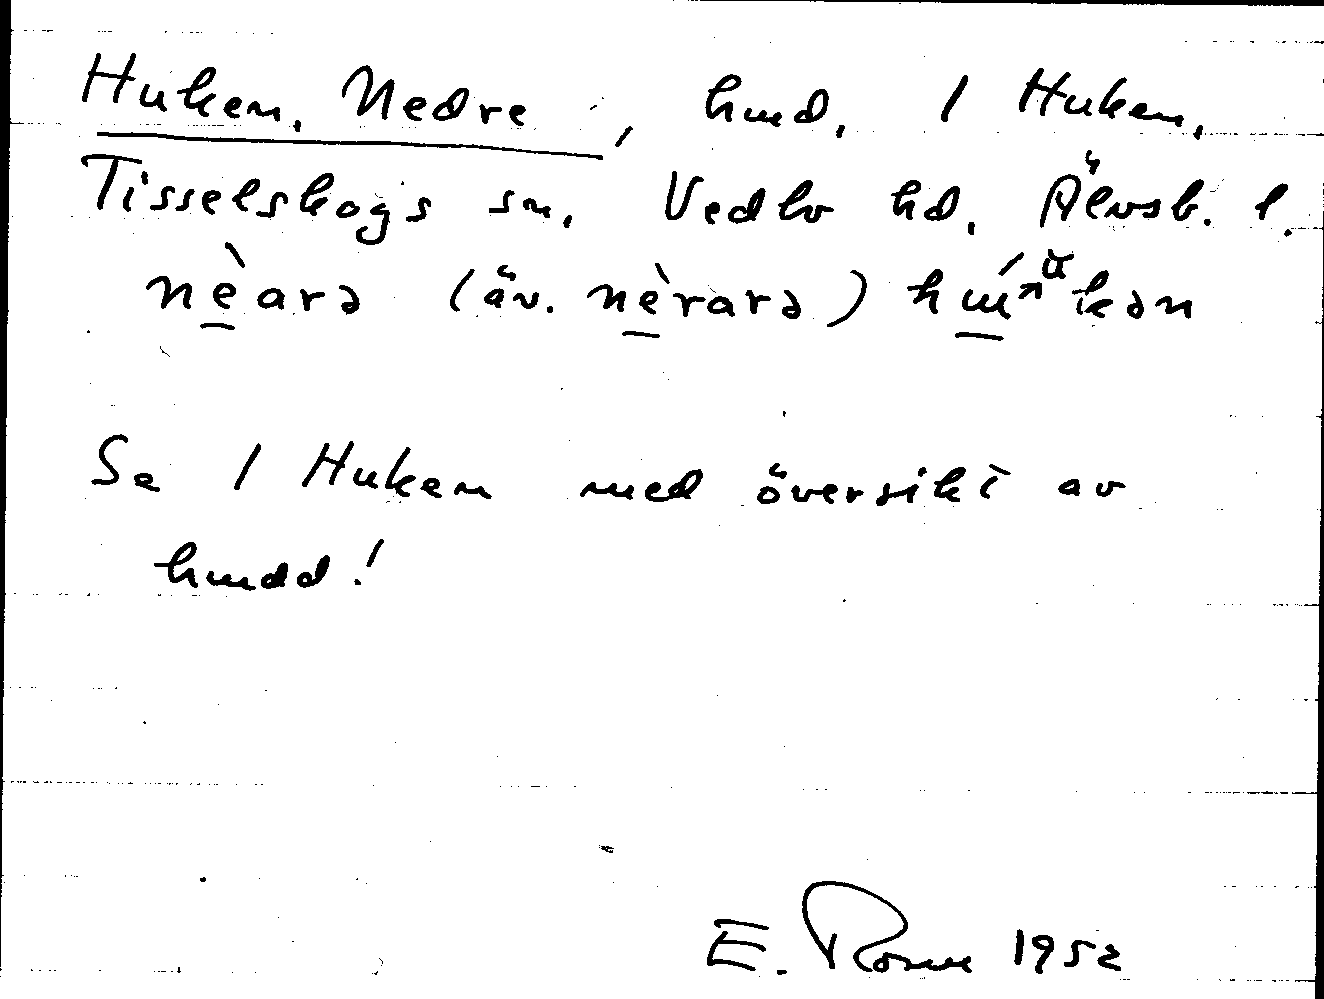 Huken, Nedre, hmd, 1 Huken,
Tisselskogs sn, Vedbo hd, Älvsb. l.
nèarə (äv. nèrarə)
Se 1 Huken med översikt av
hmdd!
E. 1952